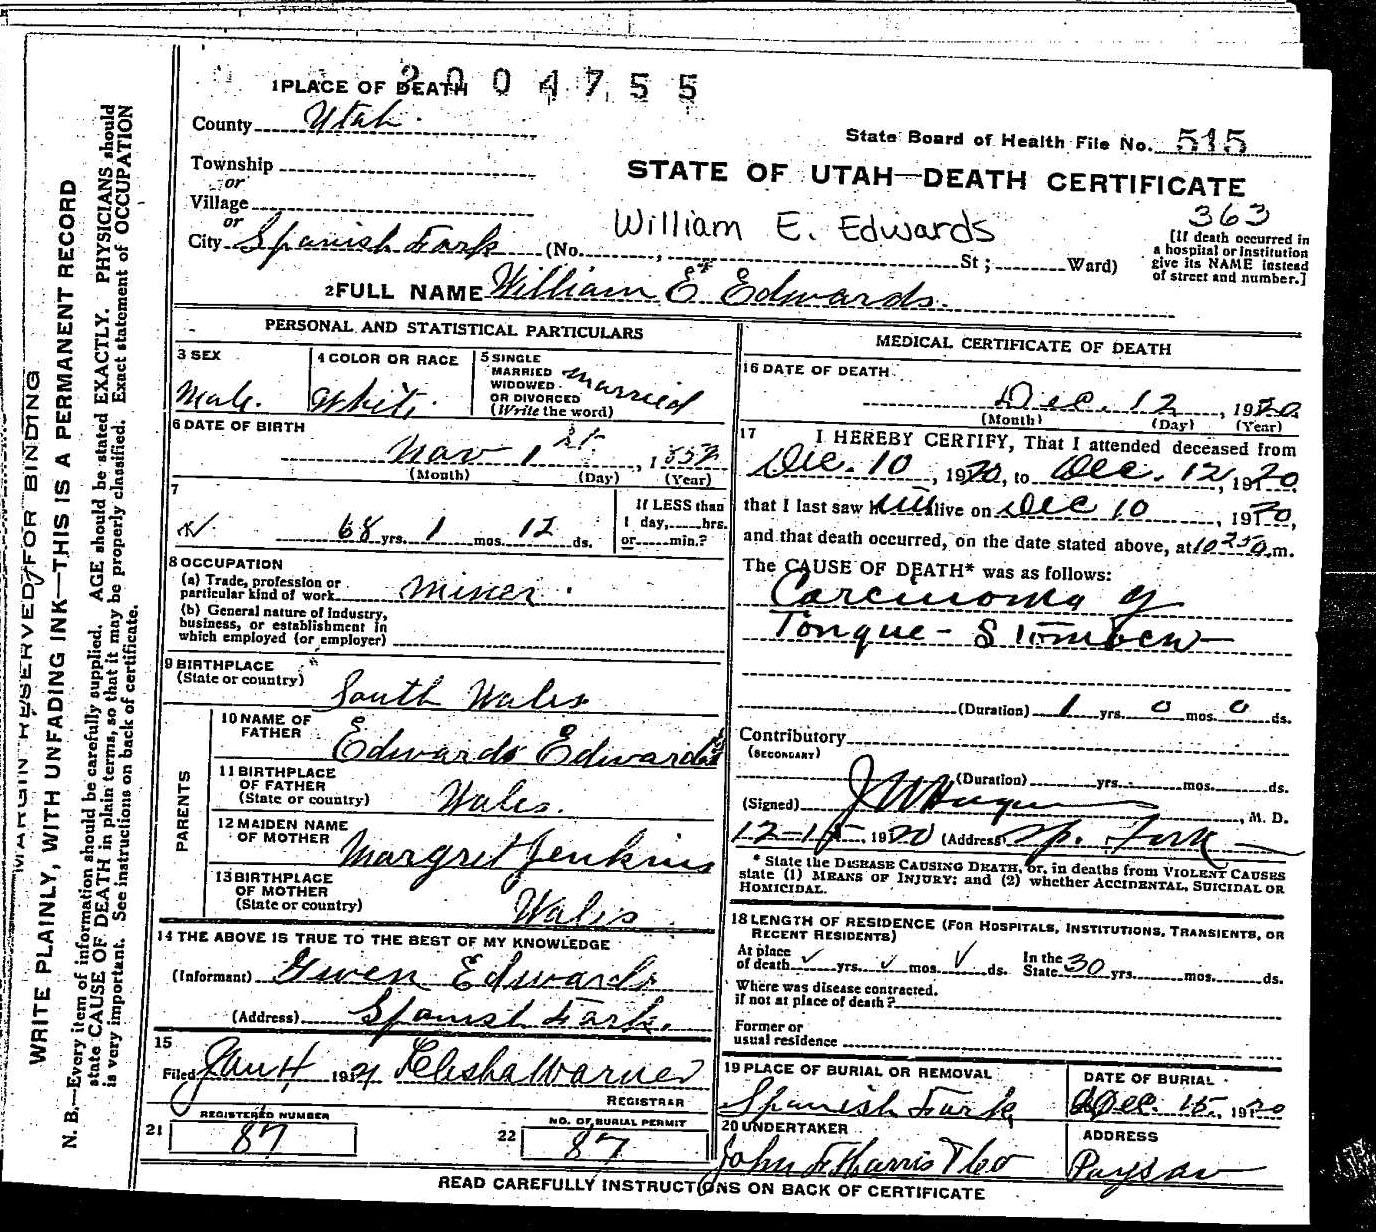 2004755
1 PLACE OF DEATH
County Utah.
State Board of Health File No. 515
Township
or
STATE OF UTAH—DEATH CERTIFICATE
Village
or
William E. Edwards
363
City Spanish Fork (No. , St ; Ward)
[If death occurred in
a hospital or institution
give its NAME instead
of street and number.]
2 FULL NAME William E Edwards.
PERSONAL AND STATISTICAL PARTICULARS
3 SEX
Male.
4 COLOR OR RACE
White.
5 SINGLE
MARRIED
WIDOWED
OR DIVORCED
(Write the word)
Married
6 DATE OF BIRTH
Nov 1 21, 1852
(Month) (Day) (Year)
7
68 yrs. 1 mos. 12 ds.
If LESS than
1 day, hrs.
or min.?
8 OCCUPATION
(a) Trade, profession or
particular kind of work Miner.
(b) General nature of industry,
business, or establishment in
which employed (or employer)
9 BIRTHPLACE
(State or country) South Wales
PARENTS
10 NAME OF
FATHER Edwards Edwards
11 BIRTHPLACE
OF FATHER
(State or country) Wales.
12 MAIDEN NAME
OF MOTHER Margret Jenkins
13 BIRTHPLACE
OF MOTHER
(State or country) Wales
14 THE ABOVE IS TRUE TO THE BEST OF MY KNOWLEDGE
(Informant) Gwen Edwards
(Address) Spanish Fork.
15
Filed Jan 4 1921 Elisha Warner
REGISTRAR
21 REGISTERED NUMBER
87
22 NO. OF BURIAL PERMIT
87
MEDICAL CERTIFICATE OF DEATH
16 DATE OF DEATH
Dec. 12, 1920
(Month) (Day) (Year)
17 I HEREBY CERTIFY, That I attended deceased from
Dec. 10, 1920, to Dec. 12, 1920,
that I last saw him alive on Dec 10, 1920,
and that death occurred, on the date stated above, at 10 250 m.
The CAUSE OF DEATH* was as follows:
Carcinoma of
Tongue -
(Duration) 1 yrs. 0 mos. 0 ds.
Contributory
(SECONDARY)
(Duration) yrs. mos. ds.
(Signed) , M. D.
12-15, 1920 (Address) Sp. Fork
* State the DISEASE CAUSING DEATH, or, in deaths from VIOLENT CAUSES
state (1) MEANS OF INJURY; and (2) whether ACCIDENTAL, SUICIDAL OR
HOMICIDAL.
18 LENGTH OF RESIDENCE (FOR HOSPITALS, INSTITUTIONS, TRANSIENTS, OR
RECENT RESIDENTS)
At place
of death yrs. mos. ds.
In the
State 30 yrs. mos. ds.
Where was disease contracted.
if not at place of death?
Former or
usual residence
19 PLACE OF BURIAL OR REMOVAL
Spanish Fork
DATE OF BURIAL
Dec. 15, 1920
20 UNDERTAKER
John F Harris & Co
ADDRESS
Payson
READ CAREFULLY INSTRUCTIONS ON BACK OF CERTIFICATE
MARGIN RESERVED FOR BINDING
WRITE PLAINLY, WITH UNFADING INK—THIS IS A PERMANENT RECORD
N. B.—Every item of information should be carefully supplied. AGE should be stated EXACTLY. PHYSICIANS should
state CAUSE OF DEATH in plain terms, so that it may be properly classified. Exact statement of OCCUPATION
is very important. See instructions on back of certificate.